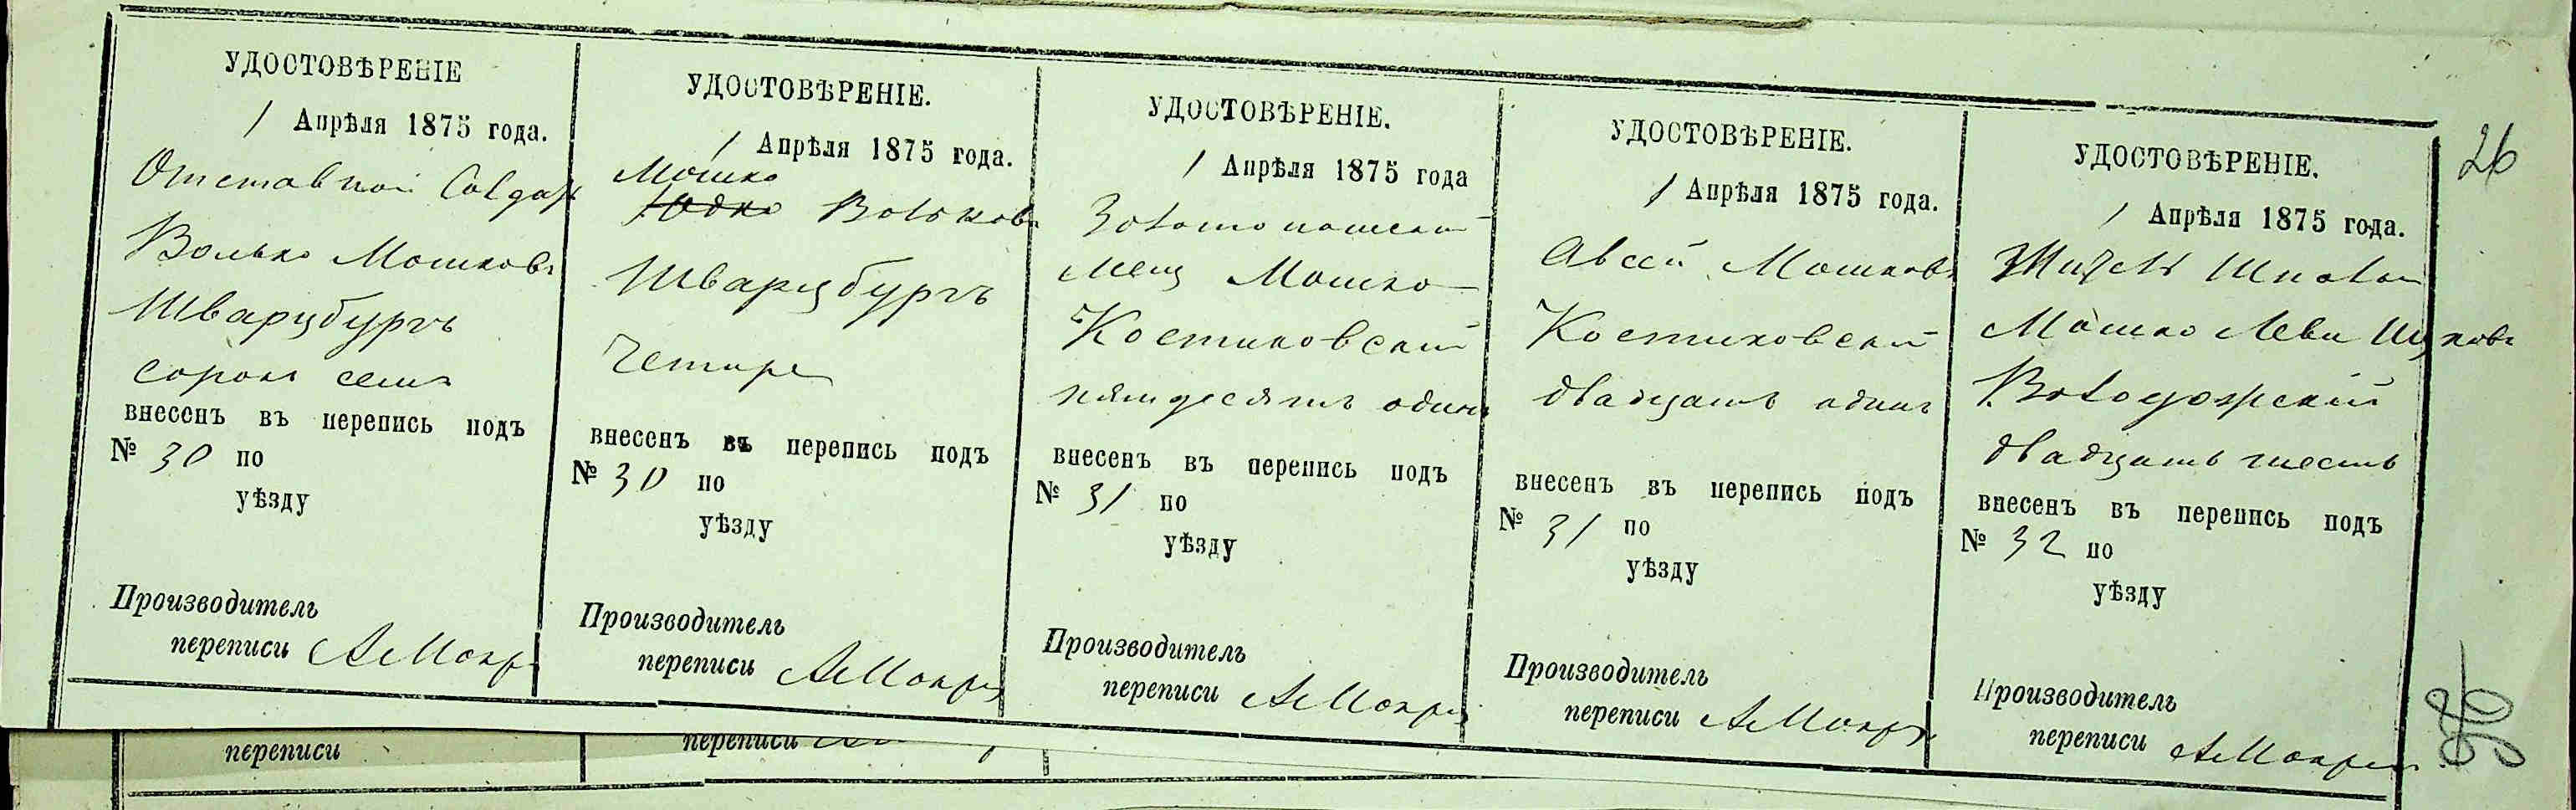 УДОСТОВѢРЕНІЕ
1 Апрѣля 1875 года.
Отставной Солдат
Волько Мошковъ
Шварцбургъ
сорокъ семь
внесенъ въ перепись подъ
№ 30 по
уѣзду
Производитель
переписи
УДОСТОВѢРЕНІЕ.
1 Апрѣля 1875 года.
Мошко
Юдко Вольковъ
Шварцбургъ
Четыре
внесенъ въ перепись подъ
№ 30 по
уѣзду
Производитель
переписи
УДОСТОВѢРЕНІЕ.
1 Апрѣля 1875 года
Мещ Мошко
Костиковскій
пятдесятъ одинъ
внесенъ въ перепись подъ
№ 31 по
уѣзду
Производитель
переписи
УДОСТОВѢРЕНІЕ.
1 Апрѣля 1875 года.
Авсей Мошковъ
Костиковскій
двадцать одинъ
внесенъ въ перепись подъ
№ 31 по
уѣзду
Производитель
переписи
УДОСТОВѢРЕНІЕ.
1 Апрѣля 1875 года.
Житель Шполы
Мошко Леви Ицковъ
двадцать шесть
внесенъ въ перепись подъ
№ 32 по
уѣзду
Производитель
переписи
26
переписи
переписи